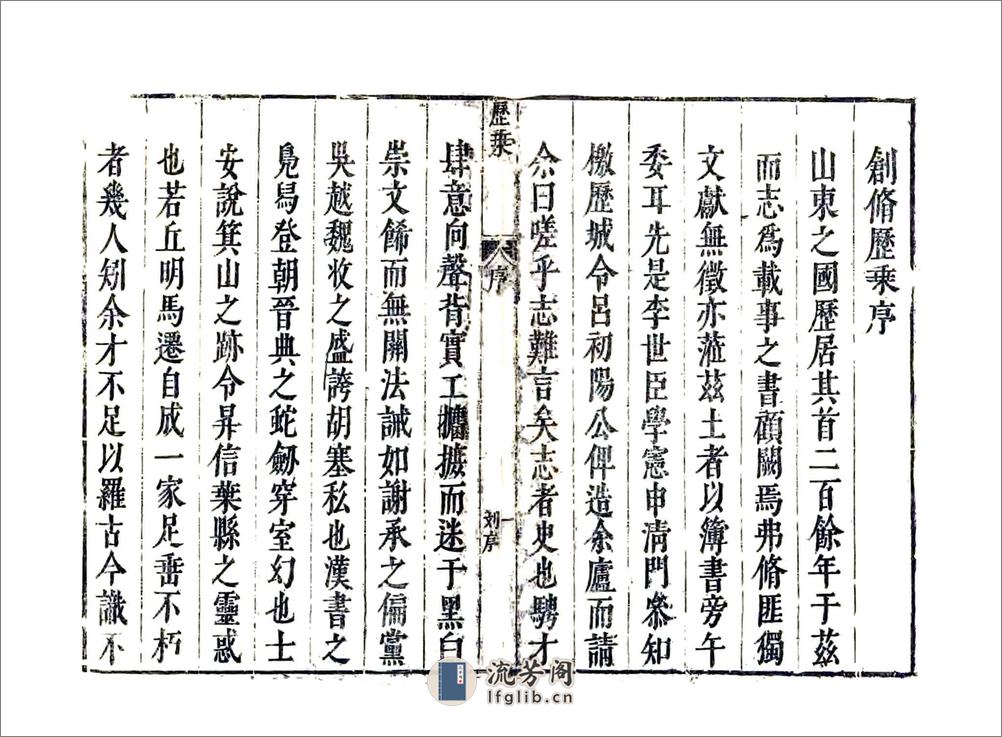 創脩歷乘序
山東之國歷居其首二百餘年于茲
而志爲載事之書顧闕焉弗脩匪獨
文獻無徵亦蒞茲土者以簿書旁午
委耳先是李世臣學憲申淸門叅知
檄歷城令呂初陽公俾造余廬而請
余曰嗟乎志難言矣志者史也騁才
歷乘
序
一
刘序
肆意向聲背實工攟摭而迷于黑白
崇文飾而無關法誡如謝承之偏黨
吳越魏收之盛誇胡塞私也漢書之
鳧舄登朝晉典之蛇劒穿室幻也士
安說箕山之跡令昇信葉縣之靈惑
也若丘明馬遷自成一家足垂不朽
者幾人矧余才不足以羅古今識不
流芳阁
lfglib.cn